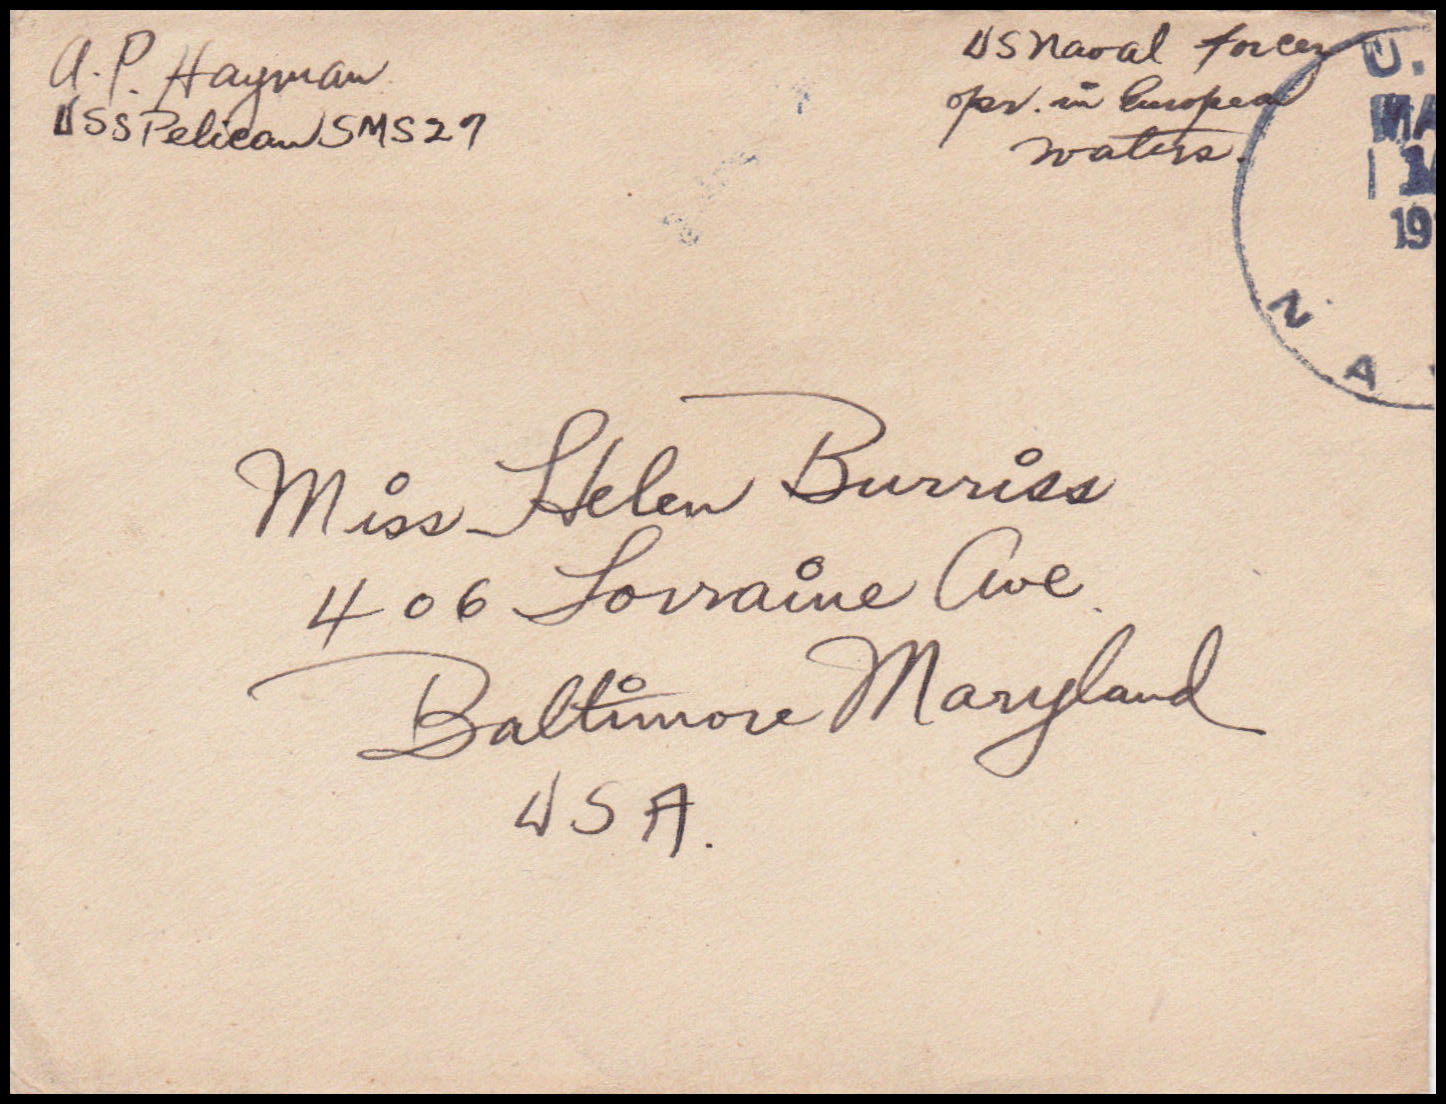 A. P. Hayman
USS Pelican SMS 27
US Naval forces
opr. in European
waters.
U.
MA
1
19
N A
Miss Helen Burriss
406 Lorraine Ave.
Baltimore Maryland
USA.